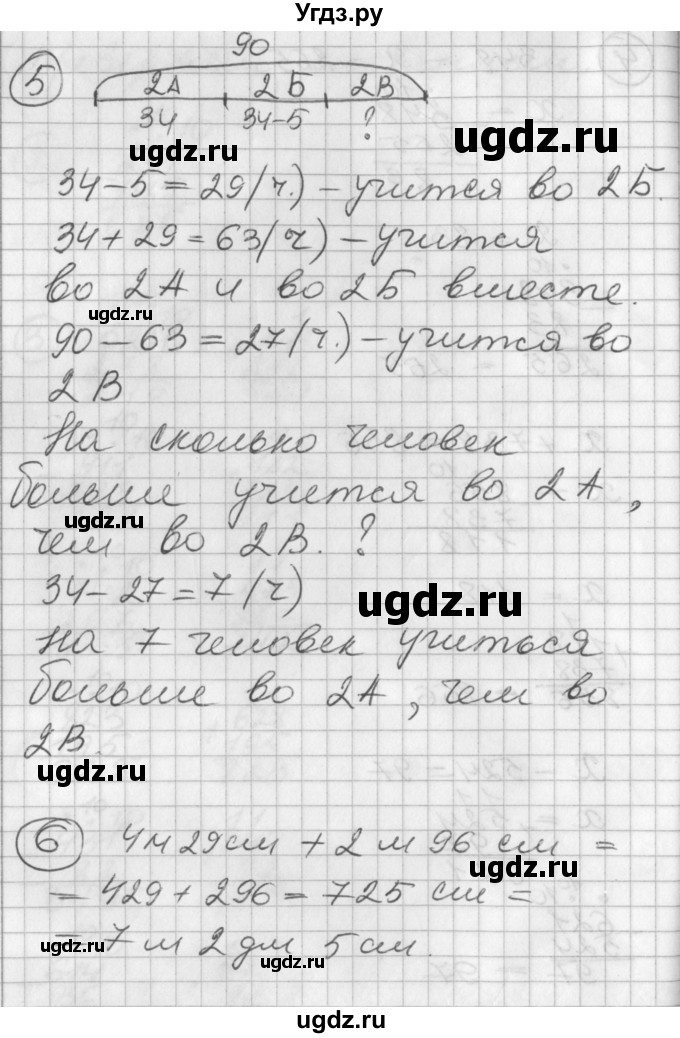 Угдз.ру
90
5
2А 2Б 2В
34 34-5 ?
ugdz.ru ugdz.ru
34-5=29(ч.) - учится во 2Б.
34+29=63(ч) - учится
во 2А и во 2Б вместе.
ugdz.ru
90-63=27(ч.) - учится во
2В
На сколько человек
больше учится во 2А,
ugdz.ru
чем во 2В.?
34-27=7(ч)
ugdz.ru
На 7 человек учиться
больше во 2А, чем во
2В.
ugdz.ru
6 4м 29см + 2м 96 см =
ugdz.ru
= 429 + 296 = 725 см =
= 7 м 2 дм 5 см.
ugdz.ru
ugdz.ru